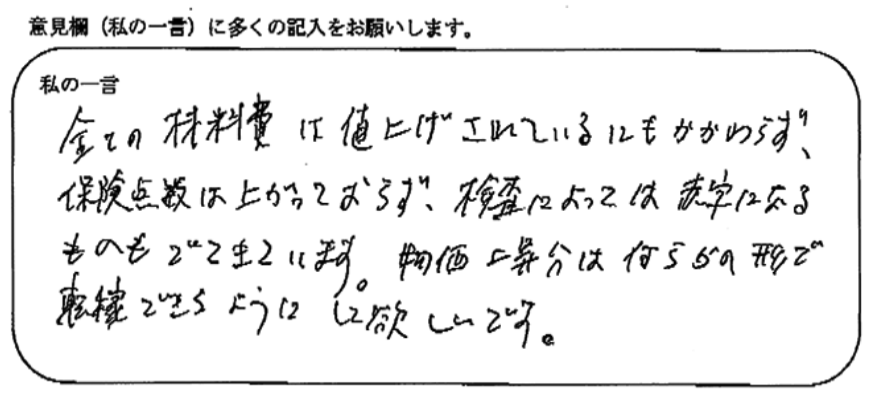 意見欄（私の一言）に多くの記入をお願いします。
私の一言
全ての材料費は値上げされているにもかかわらず、
保険点数は上がっておらず、検査によっては赤字になる
ものもでてきています。物価上昇分は何らかの形で
転嫁できるようにして欲しいです。